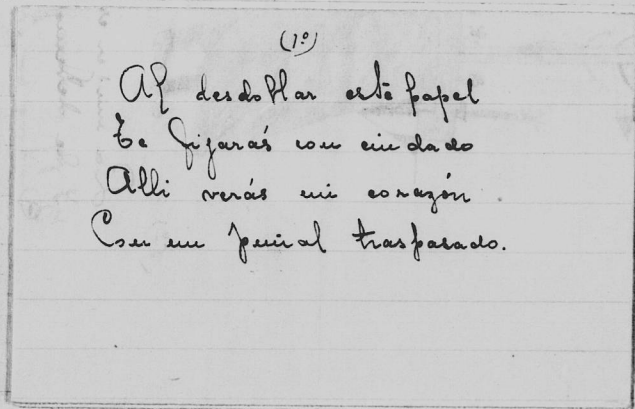 (1º)
Al desdoblar esté papel
Te fijarás con cuidado
Alli verás mi corazón
Con un puñal traspasado.